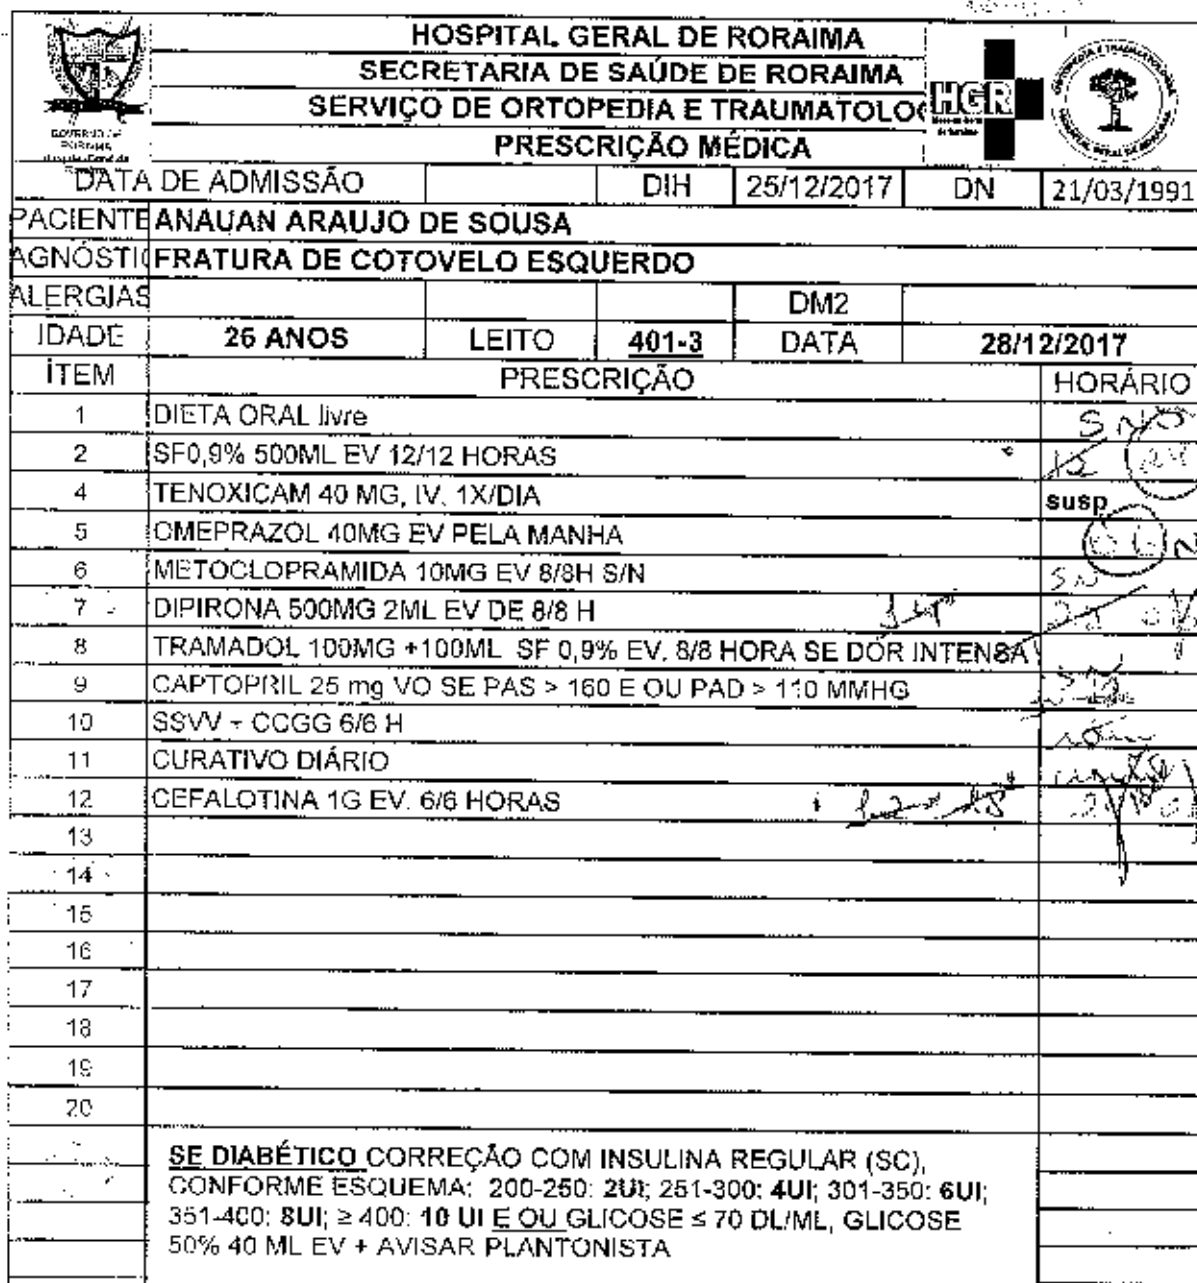 HOSPITAL GERAL DE RORAIMA
SECRETARIA DE SAÚDE DE RORAIMA
SERVIÇO DE ORTOPEDIA E TRAUMATOLO
HGR
PRESCRIÇÃO MÉDICA
DATA DE ADMISSÃO DIH 25/12/2017 DN 21/03/1991
PACIENTE ANAUAN ARAUJO DE SOUSA
AGNÓSTI FRATURA DE COTOVELO ESQUERDO
ALERGIAS DM2
IDADE 26 ANOS LEITO 401-3 DATA 28/12/2017
ÍTEM PRESCRIÇÃO HORÁRIO
1 DIETA ORAL livre
2 SF0,9% 500ML EV 12/12 HORAS 12 24
4 TENOXICAM 40 MG, IV, 1X/DIA susp
5 OMEPRAZOL 40MG EV PELA MANHA 06
6 METOCLOPRAMIDA 10MG EV 8/8H S/N SN
7 DIPIRONA 500MG 2ML EV DE 8/8 H
8 TRAMADOL 100MG +100ML SF 0,9% EV. 8/8 HORA SE DOR INTENSA
9 CAPTOPRIL 25 mg VO SE PAS > 160 E OU PAD > 110 MMHG
10 SSVV + CCGG 6/6 H
11 CURATIVO DIÁRIO
12 CEFALOTINA 1G EV. 6/6 HORAS
13
14
15
16
17
18
19
20
SE DIABÉTICO CORREÇÃO COM INSULINA REGULAR (SC),
CONFORME ESQUEMA: 200-250: 2UI; 251-300: 4UI; 301-350: 6UI;
351-400: 8UI; ≥ 400: 10 UI E OU GLICOSE ≤ 70 DL/ML, GLICOSE
50% 40 ML EV + AVISAR PLANTONISTA